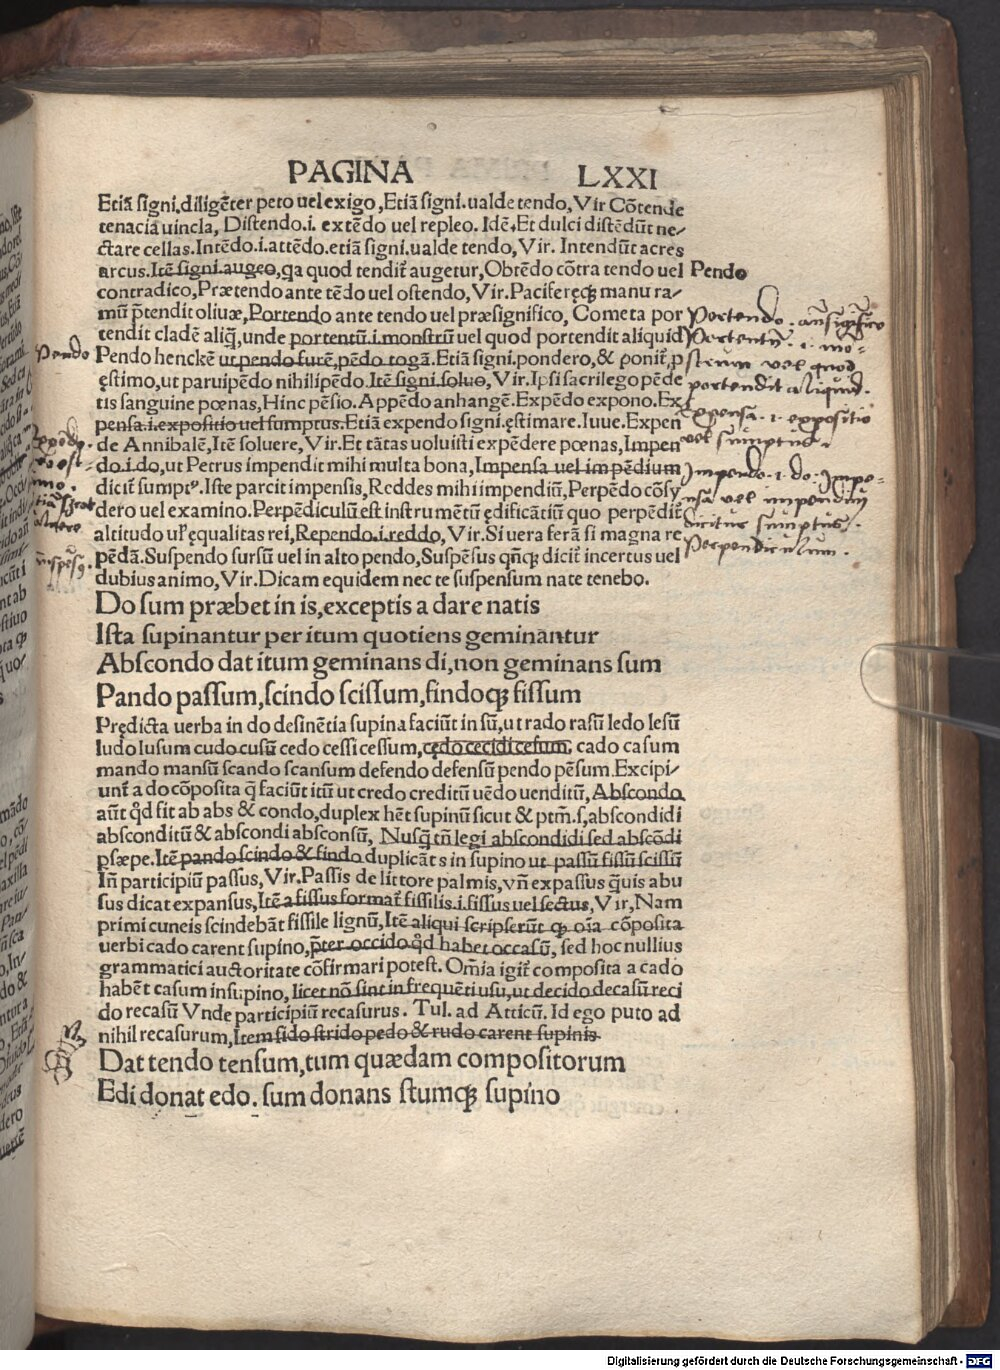 PAGINA LXXI
Etiā signi.diligēter peto uel exigo,Etiā signi.ualde tendo,Vir Cōtende
tenacia uincla, Distendo.i. extēdo uel repleo. Idē.Et dulci distēdūt ne/
ctare cellas.Intēdo.i.attēdo.etiā signi.ualde tendo, Vir. Intendūt acres
arcus.Itē signi.augeo,qa quod tendit̃ augetur,Obtēdo cōtra tendo uel
Pendo
contradico,Prætendo ante tēdo uel ostendo, Vir.Paciferęq; manu ra/
mū p̃tendit oliuæ,Portendo ante tendo uel præsignifico, Cometa por
tendit cladē aliq̃,unde portentū.i.monstrū uel quod portendit aliquid
Pendo henckē ut pendo furē,pēdo togā.Etiā signi.pondero,& ponit̃,p
ęstimo,ut paruipēdo nihilipēdo.Itē signi.soluo,Vir.Ipsi sacrilego pēde
tis sanguine pœnas,Hinc pēsio.Appēdo anhangē.Expēdo expono.Ex
pensa.i.expositio uel sumptus.Etiā expendo signi.ęstimare.Iuue.Expen
de Annibalē,Itē soluere, Vir.Et tātas uoluisti expēdere pœnas,Impen
do.i.do,ut Petrus impendit mihi multa bona,Impensa uel impēdium
dicit̃ sumptꝰ.Iste parcit impensis,Reddes mihi impendiū,Perpēdo cōsy
dero uel examino.Perpēdiculū est instrumētū ędificātiū quo perpēdit̃
altitudo ul̃ equalitas rei,Rependo.i.reddo, Vir.Si uera ferā si magna re
pēdā.Suspendo sursū uel in alto pendo,Suspēsus qñq; dicit̃ incertus uel
dubius animo, Vir.Dicam equidem nec te suspensum nate tenebo.
Do sum præbet in is,exceptis a dare natis
Ista supinantur per itum quotiens geminantur
Abscondo dat itum geminans di,non geminans sum
Pando passum,scindo scissum,findoq; fissum
Prędicta uerba in do desinētia supina faciūt in sū,ut rado rasū ledo lesū
ludo lusum cudo cusū cedo cessi cessum,cędo cecidi cesum, cado casum
mando mansū scando scansum defendo defensū pendo pēsum.Excipi/
unt̃ a do cōposita q̃ faciūt itū ut credo creditū uēdo uenditū, Abscondo
aūt q̊d fit ab abs & condo,duplex hēt supinū sicut & ptm̃.s,abscondidi
absconditū & abscondi absconsū, Nusq̃ tñ legi abscondidi sed abscōdi
p̱sæpe.Itē pando scindo & findo duplicāt s in supino ut passū fissū scissū
In̄ participiū passus, Vir.Passis de littore palmis,vn̄ expassus q̃uis abu
sus dicat expansus,Itē a fissus format̃ fissilis.i.fissus uel sectus,Vir,Nam
primi cuneis scindebāt fissile lignū,Itē aliqui scripserūt q; oīa cōposita
uerbi cado carent supino,p̃ter occido q̊d habet occasū, sed hoc nullius
grammatici auctoritate cōfirmari potest. Om̄ia igit̃ composita a cado
habēt casum in supino, licet nō sint in frequēti usu,ut decido decasū reci
do recasū Vnde participiū recasurus. Tul. ad Atticū. Id ego puto ad
nihil recasurum,Item sido strido pedo & rudo carent supinis.
Dat tendo tensum,tum quædam compositorum
Edi donat edo. sum donans stumq; supino
Portendo
Portentū .i. mo-
strum vel quod
portendit aliquid.
Expensa .i. expositio
vel sumptus.
Impendo .i. do. Impe-
nsa vel impendiū
dicitur sumptus.
Perpendiculum.
Pendo
Expendo.